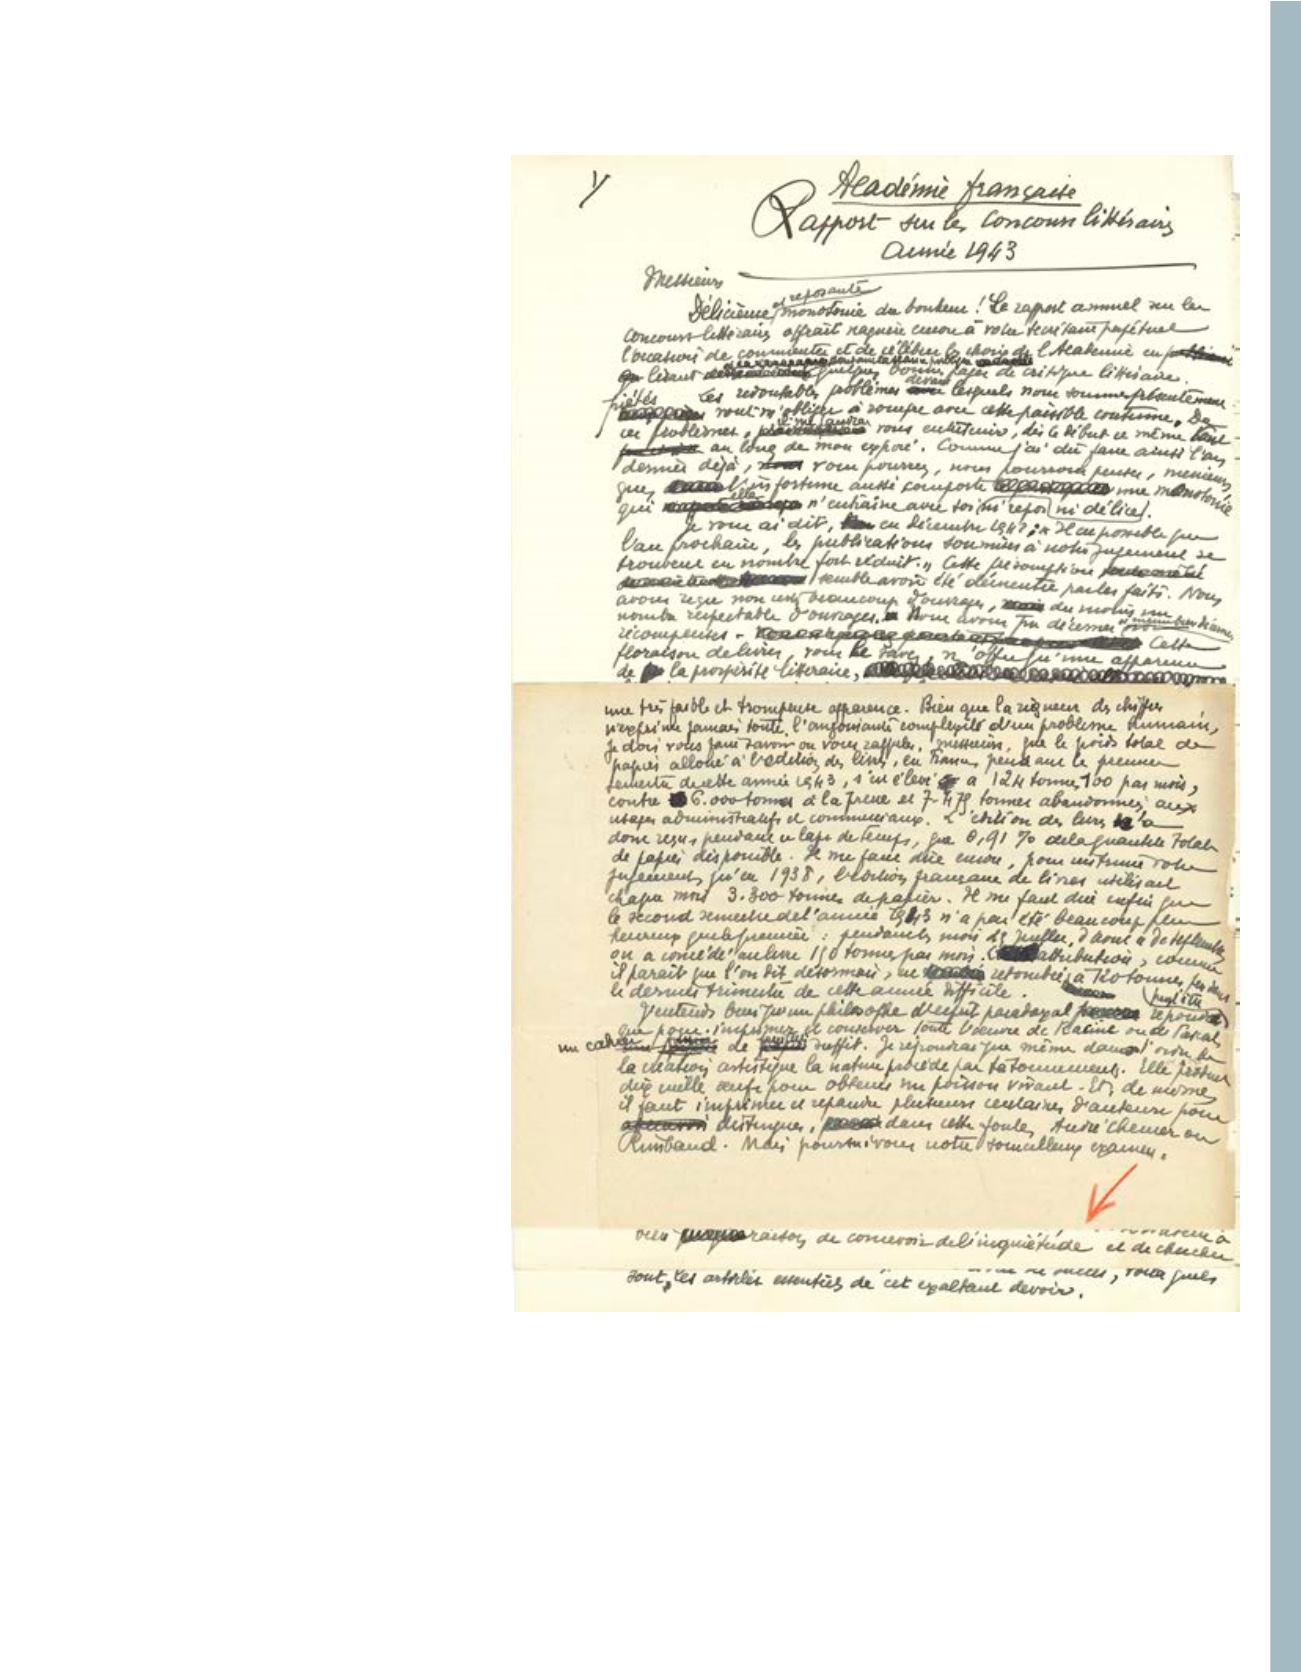 1/
Académie française
Rapport sur les concours littéraires
Année 1943
Messieurs
Délicieuse et reposante monotonie du bonheur ! Le rapport annuel sur les
concours littéraires offrait naguère encore à votre secrétaire perpétuel
l'occasion de commenter et de célébrer les choix de l'Académie en
lisant quelques bonnes pages de critique littéraire.
Les redoutables problèmes devant lesquels nous sommes présentement
vont m'obliger à rompre avec cette paisible coutume. De
ces problèmes, il me faudra vous entretenir, dès le début et même tout
au long de mon exposé. Comme j'ai dû faire ainsi l'an
dernier déjà, vous pourrez, nous pourrons penser, messieurs,
que l'infortune aussi comporte une monotonie
qui n'entraîne avec soi ni repos ni délice.
Je vous ai dit, en décembre 1942 : « Il est possible que
l'an prochain, les publications soumises à notre jugement se
trouvent en nombre fort réduit. » Cette présomption
semble avoir été démentie par les faits. Nous
avons reçu non certes beaucoup d'ouvrages, du moins un
nombre respectable d'ouvrages. Nous avons pu décerner
récompenses. Cette
floraison de livres, vous le savez, n'offre qu'une apparence
de la prospérité littéraire,
une très faible et trompeuse apparence. Bien que la rigueur des chiffres
n'exprime jamais toute l'angoissante complexité d'un problème humain,
je dois vous faire savoir ou vous rappeler, messieurs, que le poids total de
papier alloué à l'édition des livres, en France, pendant le premier
semestre de cette année 1943, s'est élevé à 124 tonnes 100 par mois,
contre 6.000 tonnes à la presse et 7.479 tonnes abandonnées aux
usages administratifs et commerciaux. L'édition des livres n'a
donc reçu, pendant ce laps de temps, que 0,91 % de la quantité totale
de papier disponible. Il me faut dire encore, pour instruire votre
jugement, qu'en 1938, l'édition française de livres utilisait
chaque mois 3.300 tonnes de papier. Il me faut dire enfin que
le second semestre de l'année 1943 n'a pas été beaucoup plus
heureux que le premier : pendant les mois de juillet, d'août et de septembre,
on a concédé au livre 150 tonnes par mois. attribution, comme
il paraît que l'on dit désormais, est retombée à 120 tonnes pendant
le dernier trimestre de cette année difficile.
J'entends bien qu'un philosophe d'esprit paradoxal répondre
que pour imprimer et conserver toute l'œuvre de Racine ou de Pascal,
un cahier de suffit. Je répondrai que même dans l'ordre de
la création artistique la nature procède par tâtonnements. Elle produit
dix mille œufs pour obtenir un poisson vivant. Et, de même,
il faut imprimer et répandre plusieurs centaines d'auteurs pour
distinguer, dans cette foule, André Chénier ou
Rimbaud. Mais poursuivons notre sourcilleux examen.
raison de concevoir de l'inquiétude et de chercher
sont, les articles essentiels de cet exaltant devoir.